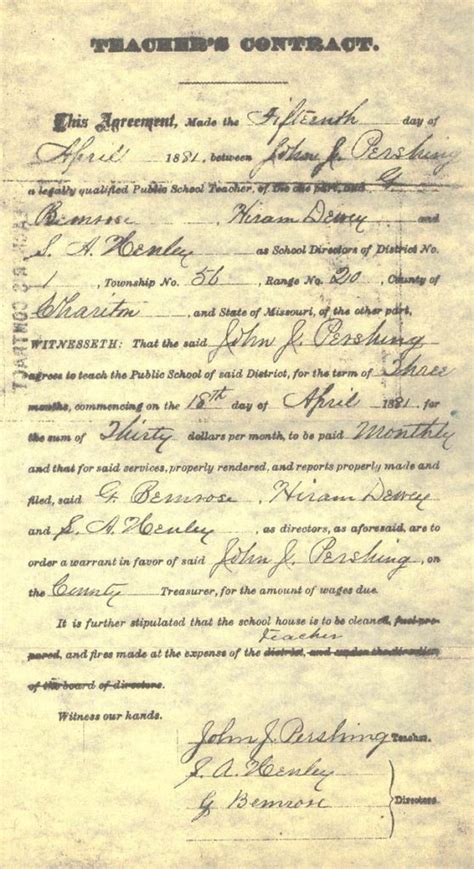 TEACHER'S CONTRACT.
This Agreement, Made the Fifteenth day of
April 1881, between John J. Pershing
a legally qualified Public School Teacher, of the one part, and G
Bemrose, Hiram Dewey and
S. A. Henley as School Directors of District No.
1, Township No. 56, Range No. 20, County of
Chariton, and State of Missouri, of the other part,
WITNESSETH: That the said John J. Pershing
agrees to teach the Public School of said District, for the term of Three
months, commencing on the 18th day of April 1881, for
the sum of Thirty dollars per month, to be paid Monthly
and that for said services, properly rendered, and reports properly made and
filed, said G. Bemrose, Hiram Dewey
and S. A. Henley, as directors, as aforesaid, are to
order a warrant in favor of said John J. Pershing, on
the County Treasurer, for the amount of wages due.
It is further stipulated that the school house is to be cleaned, fuel pre-
teacher
pared, and fires made at the expense of the district, and under the direction
of the board of directors.
Witness our hands.
John J. Pershing Teacher.
S. A. Henley
G Bemrose Directors.